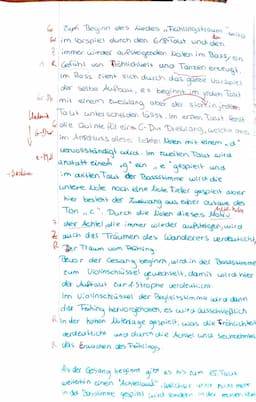 Zum Beginn des Liedes "Frühlingstraum" wird
im Vorspiel durch den 6/8 Takt und den
immer wieder aufsteigenden Noten im Bass, ein
Gefühl von Fröhlichkeit und Tanzen erzeugt.
Im Bass zieht sich durch das ganze Vorspiel
der selbe Aufbau, es beginnt in jedem Takt
mit einem zweiklang aber der sich in jedem
Takt unterscheiden lässt. Im ersten Takt
die für ein G-Dur Dreiklang, welche
im Anschluss dieser beiden Noten mit einem "d"
vervollständigt wird. Im zweiten Takt wird
anstatt einem "g" ein "e" gespielt und
im dritten Takt der Bassstimme wird die
untere Note noch eine Note tiefer gespielt aber
hier besteht der Zweiklang aus
Ton "c". Durch die Noten dieses Motiv
der Achtel die immer wieder aufsteigen, wird
auch das Träumen des Wanderers verdeutlicht,
Der Traum vom Frühling.
Bevor der Gesang beginnt, wird in der Bassstimme
zum Violinschlüssel gewechselt, damit wird hier
der Auftakt zur 1. Strophe verdeutlicht.
Im Violinschlüssel der Begleitstimme wird dann
der Frühling hervorgehoben, es wird ausschließlich
in der hohen gespielt, was die Fröhlichkeit
verdeutlicht und durch die Achtel und
das Erwachen des Frühlings.
Als der Gesang beginnt gibt es bis zum 15. Takt
weiterhin einen welcher nicht mehr
in der Bassstimme gespielt wird sondern in der